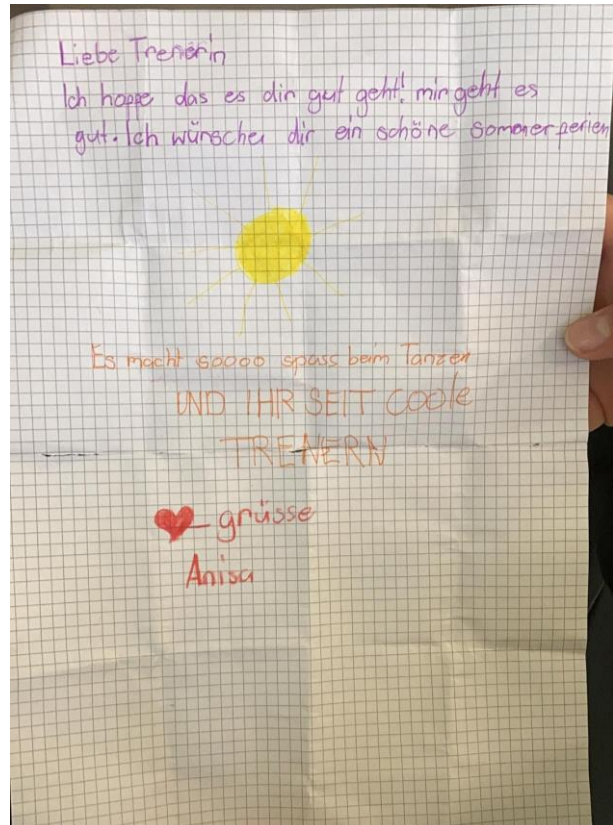 Liebe Trenerin
Ich hoffe das es dir gut geht! mir geht es
gut. Ich wünsche dir ein schöne Sommerferien
Es macht soooo spass beim Tanzen
UND IHR SEIT COOle
TRENERN
grüsse
Anisa